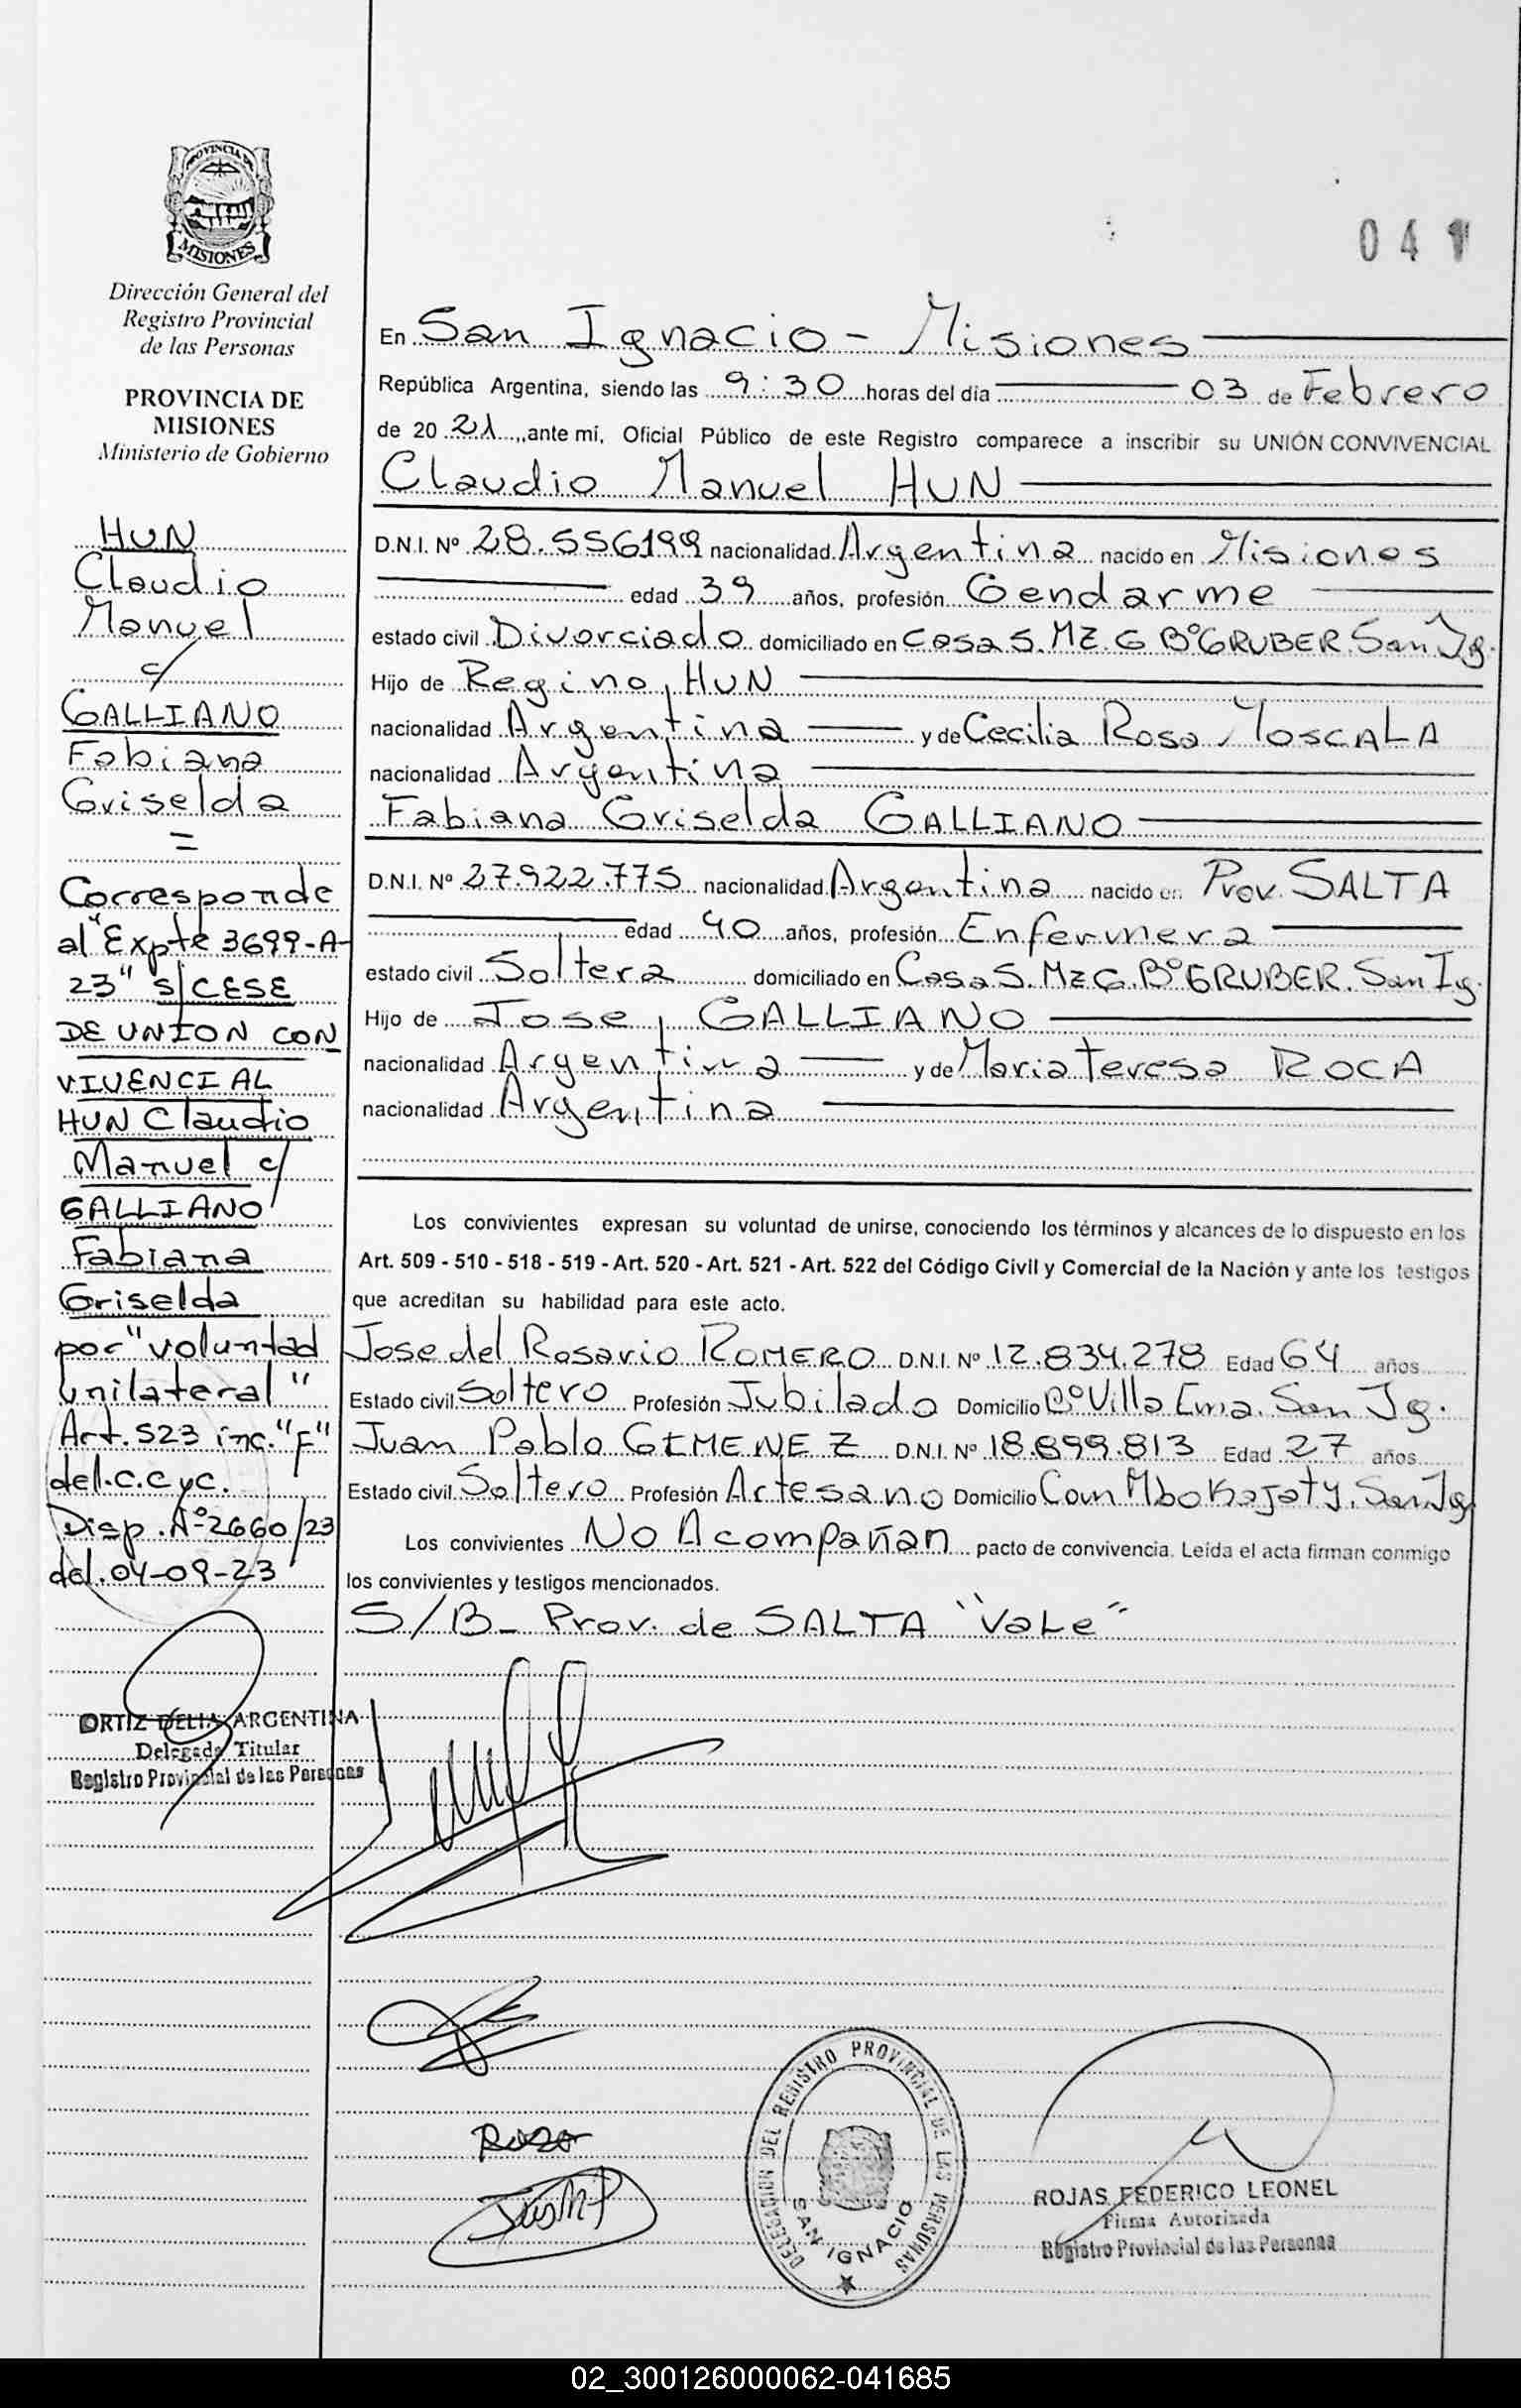 PROVINCIA DE
MISIONES
Dirección General del
Registro Provincial
de las Personas
PROVINCIA DE
MISIONES
Ministerio de Gobierno
HUN
Claudio
Manuel
c/
GALLIANO
Fabiana
Griselda
=
Corresponde
al "Expte 3699-A-
23" s/CESE
DE UNION CON
VIVENCIAL
HUN Claudio
Manuel c/
GALLIANO
Fabiana
Griselda
por "voluntad
unilateral"
Art. 523 inc. "F"
del C.C yC.
Disp. Nº 2660/23
del 04-09-23
ORTIZ DELIA ARGENTINA
Delegada Titular
Registro Provincial de las Personas
041
En San Ignacio - Misiones
República Argentina, siendo las 9:30 horas del día 03 de Febrero
de 2021, ante mí, Oficial Público de este Registro comparece a inscribir su UNIÓN CONVIVENCIAL
Claudio Manuel HUN
D.N.I. Nº 28.556199 nacionalidad Argentina nacido en Misiones
edad 39 años, profesión Gendarme
estado civil Divorciado domiciliado en Casa 5. MZ. G Bº GRUBER. San Ig.
Hijo de Regino, HUN
nacionalidad Argentina y de Cecilia Rosa MOSCALA
nacionalidad Argentina
Fabiana Griselda GALLIANO
D.N.I. Nº 27.922.775 nacionalidad Argentina nacido en Prov. SALTA
edad 40 años, profesión Enfermera
estado civil Soltera domiciliado en Casa 5. Mz G. Bº GRUBER. San Ig.
Hijo de Jose, GALLIANO
nacionalidad Argentina y de Maria Teresa ROCA
nacionalidad Argentina
Los convivientes expresan su voluntad de unirse, conociendo los términos y alcances de lo dispuesto en los
Art. 509 - 510 - 518 - 519 - Art. 520 - Art. 521 - Art. 522 del Código Civil y Comercial de la Nación y ante los testigos
que acreditan su habilidad para este acto.
Jose del Rosario ROMERO D.N.I. Nº 12.834.278 Edad 64 años
Estado civil Soltero Profesión Jubilado Domicilio Bº Villa Ema. San Ig.
Juan Pablo GIMENEZ D.N.I. Nº 18.899.813 Edad 27 años
Estado civil Soltero Profesión Artesano Domicilio Com Mbokajaty. San Ig
Los convivientes No Acompañan pacto de convivencia. Leída el acta firman conmigo
los convivientes y testigos mencionados.
S/B- Prov. de SALTA "Vale"
DELEGACION DEL REGISTRO PROVINCIAL DE LAS PERSONAS
SAN IGNACIO
ROJAS FEDERICO LEONEL
Firma Autorizada
Registro Provincial de las Personas
02_300126000062-041685